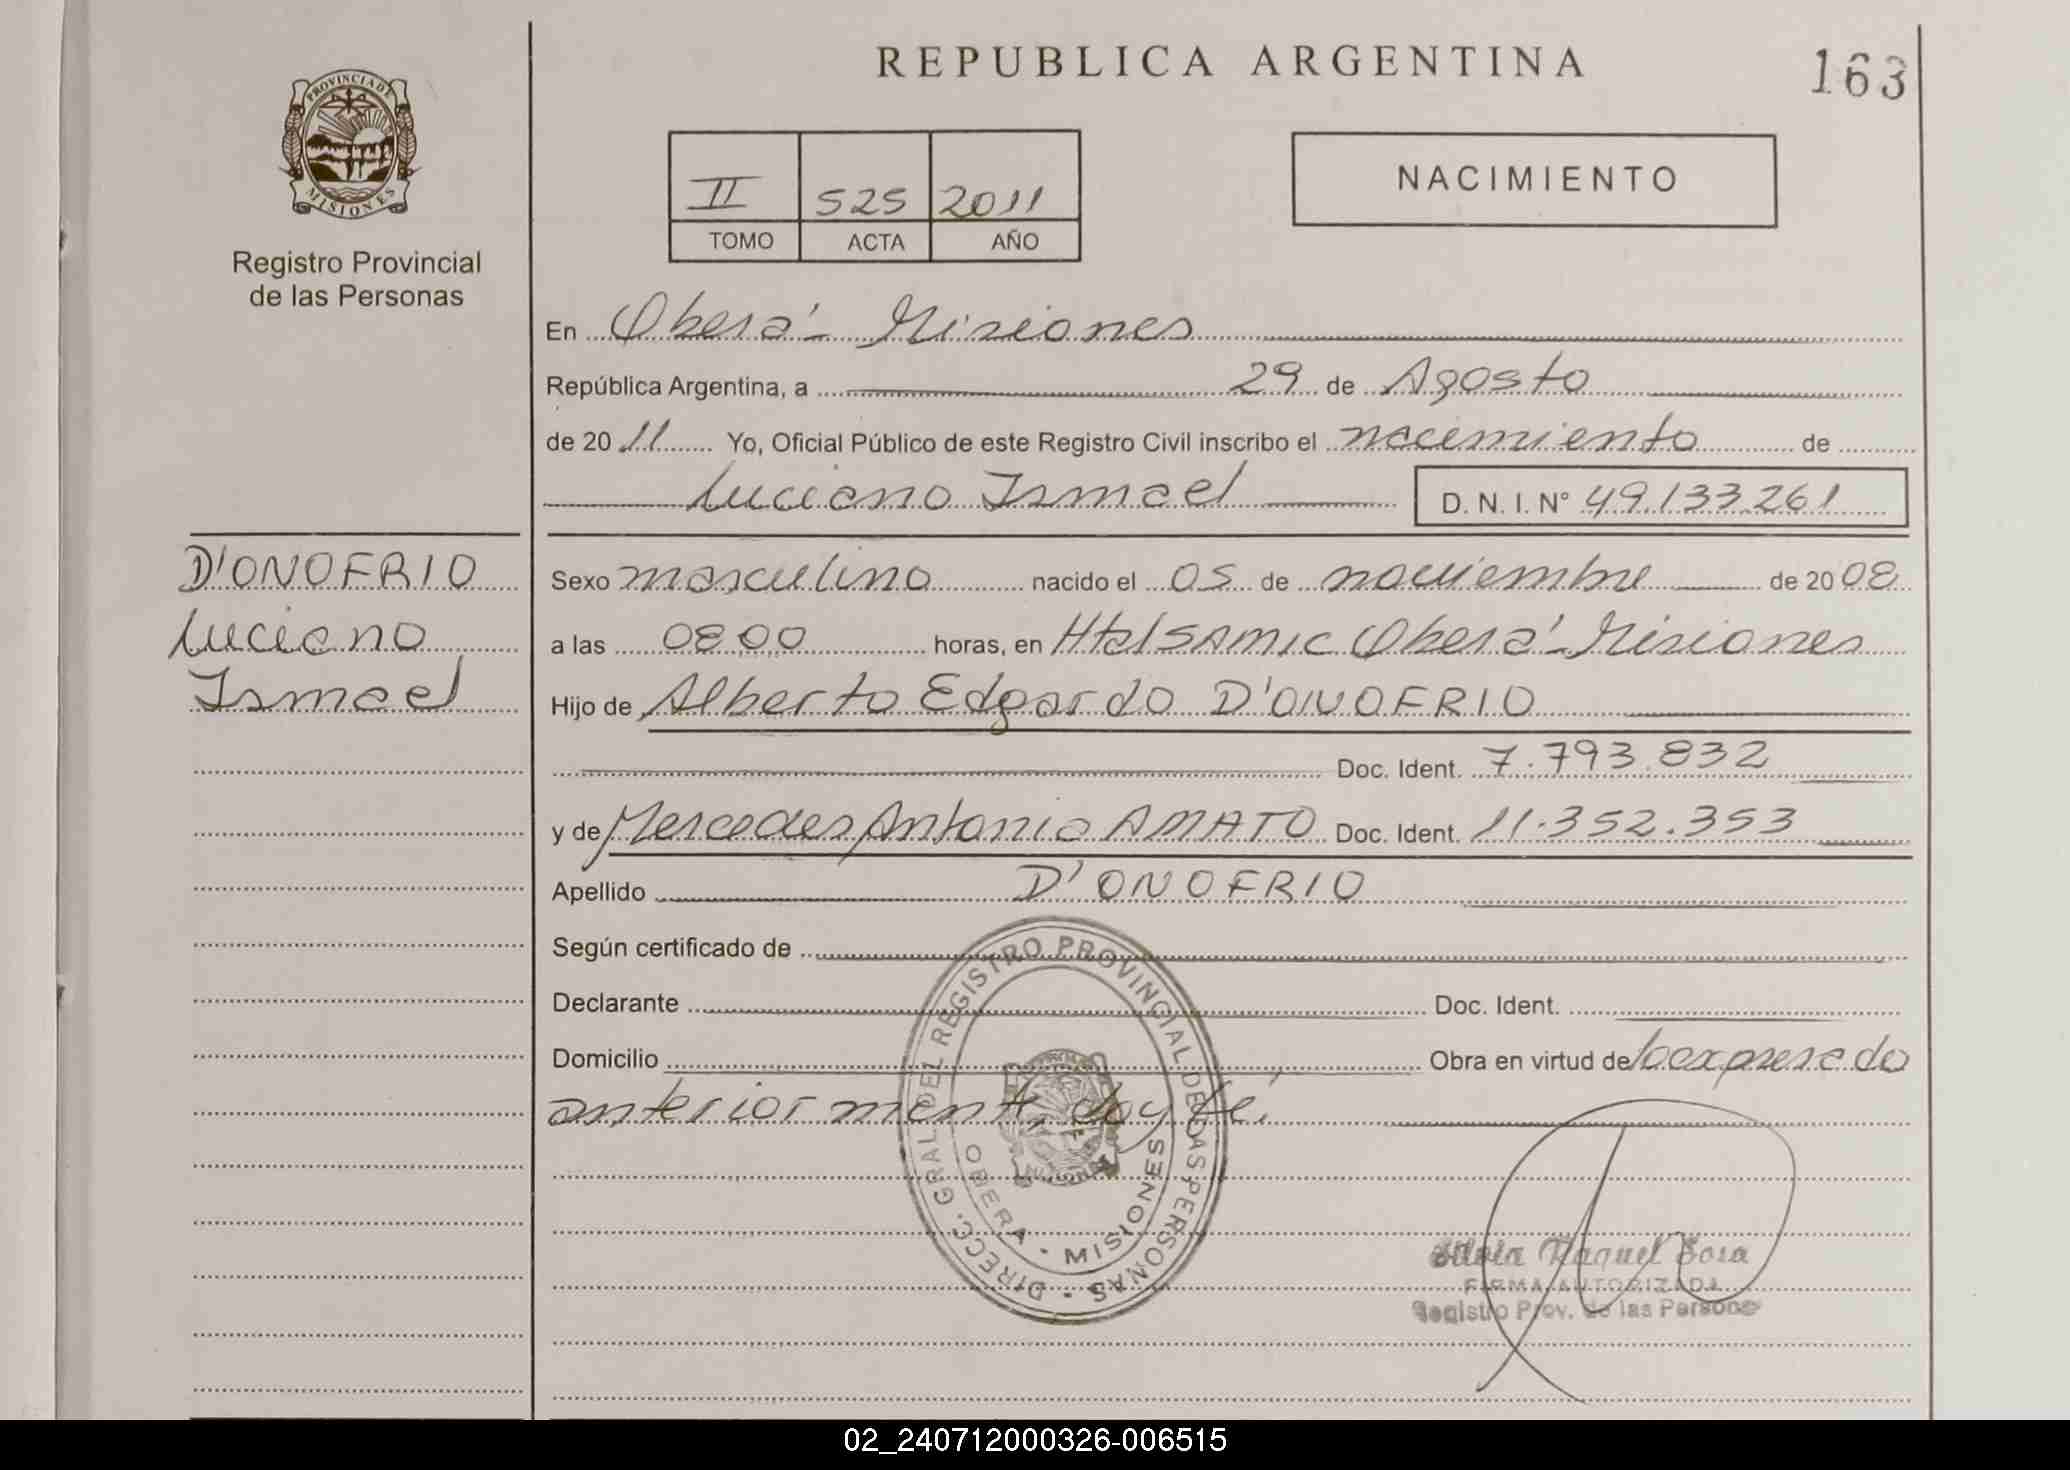 REPUBLICA ARGENTINA
163
PROVINCIA DE
MISIONES
Registro Provincial
de las Personas
II 525 2011
TOMO ACTA AÑO
NACIMIENTO
En Oberá - Misiones
República Argentina, a 29 de Agosto
de 20 11 Yo, Oficial Público de este Registro Civil inscribo el nacimiento de
Luciano Ismael D. N. I. N° 49.133.261
D'ONOFRIO
Luciano
Ismael
Sexo masculino nacido el 05 de noviembre de 20 08
a las 08,00 horas, en Htal SAMIC Oberá - Misiones
Hijo de Alberto Edgardo D'ONOFRIO
Doc. Ident. 7.793.832
y de Mercedes Antonia AMATO Doc. Ident. 11.352.353
Apellido D'ONOFRIO
Según certificado de
Declarante Doc. Ident.
Domicilio Obra en virtud de lo expresado
anteriorment doy fé.
DIRECC. GRAL. DEL REGISTRO PROVINCIAL DE LAS PERSONAS
OBERA - MISIONES
Silvia Raquel Sosa
FIRMA AUTORIZADA
Registro Prov. de las Personas
02_240712000326-006515